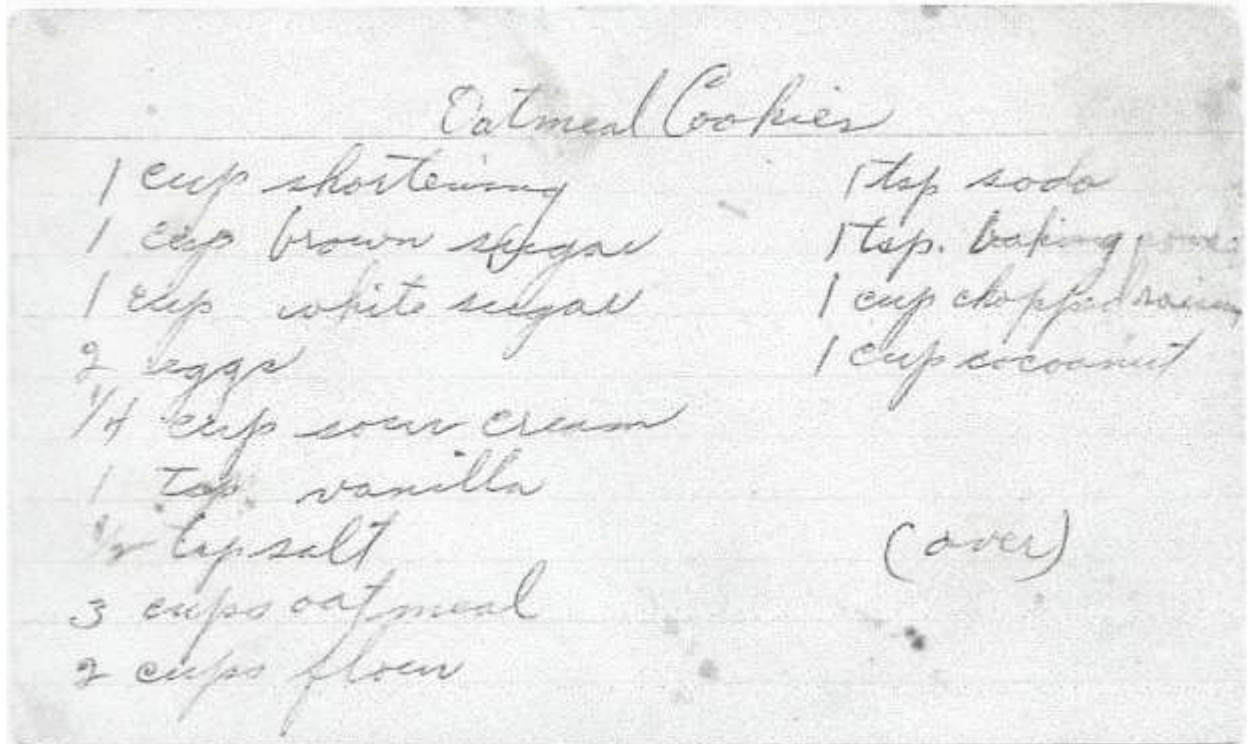 Oatmeal Cookies
1 cup shortening
1 cup brown sugar
1 cup white sugar
2 eggs
1/4 cup sour cream
1 tsp. vanilla
1/2 tsp salt
3 cups oatmeal
2 cups flour
1 tsp soda
1 tsp. baking
1 cup chopped raisins
1 cup cocoanut
(over)